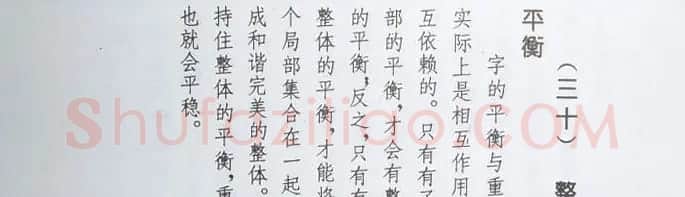 （三十） 整
平衡
字的平衡与重
实际上是相互作用
互依赖的。只有有了
部的平衡,才会有整
的平衡,反之,只有有
整体的平衡,才能将
个局部集合在一起
成和谐完美的整体。
持住整体的平衡,重
也就会平稳。
Shufaziliao.COM